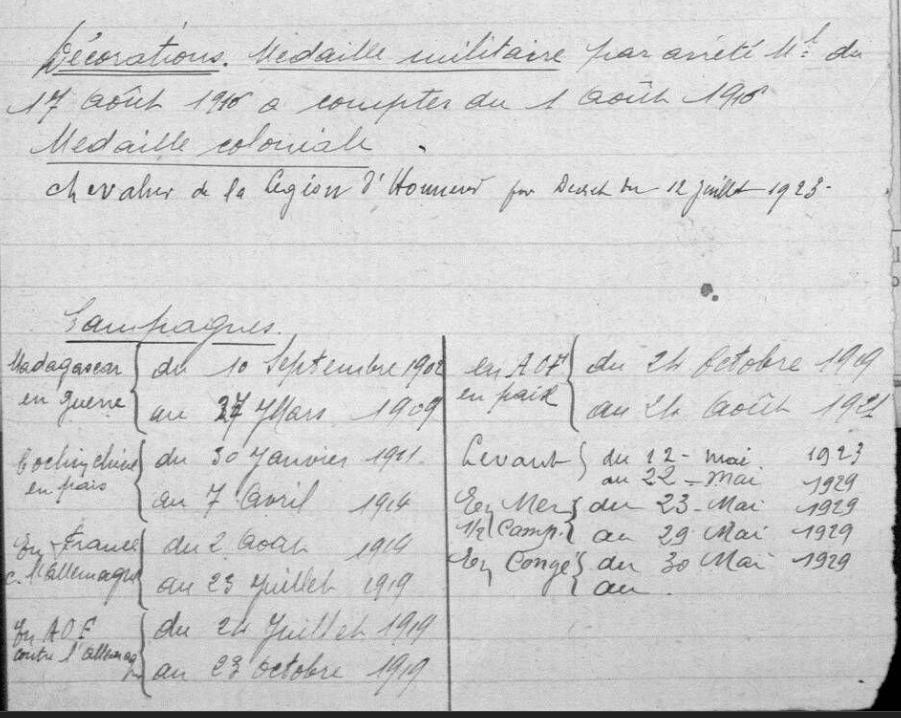 Décorations. Medaille militaire par arrêté M.el du
17 Août 1916 a compter du 1 Août 1916
Medaille coloniale.
Chevalier de la Legion d'Honneur par Decret du 12 juillet 1923.
Campagnes.
Madagascar en guerre { du 10 Septembre 1902
au 27 Mars 1909
Cochinchine en paix { du 30 Janvier 1911.
au 7 Avril 1914
En France c. l'allemagne { du 2 Août 1914
au 23 Juillet 1919
En AOF contre l'allemag { du 24 Juillet 1919
au 23 Octobre 1919
en AOF en paix { du 24 Octobre 1919
au 24 Août 1921
Levant { du 12 - mai 1923
au 22 - Mai 1929
En Mer { du 23 - Mai 1929
1/2 Camp. { au 29 Mai 1929
En Congé { du 30 Mai 1929
au .